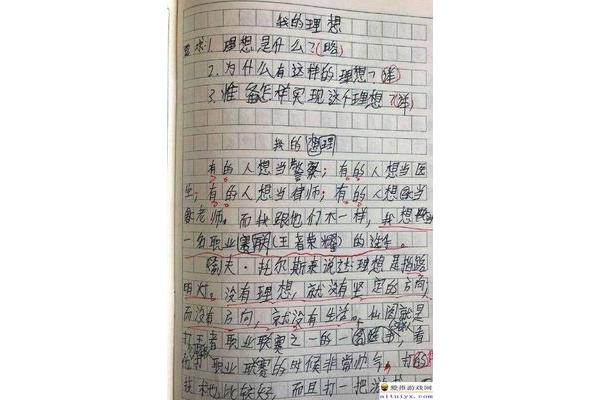 我的理想
要求:1.理想是什么?(略)
2.为什么有这样的理想?(详)
3.准备怎样实现这个理想?(详)
我的理想
有的人想当警察;有的人想当医
生;有的人想当律师;有的人想当
老师。而我跟他们不一样,我想
一名职业联赛(王者荣耀)的选手。
列夫·托尔斯泰说过:理想是指路
明灯。没有理想,就没有坚定的方向,
而没有方向,就没有生活。仙阁就是
打王者职业联赛之一的一名选手,看
他打职业联赛的时候非常帅气,打的
技术也比较好,而且打一把
爱推游戏网
aituiyx.com